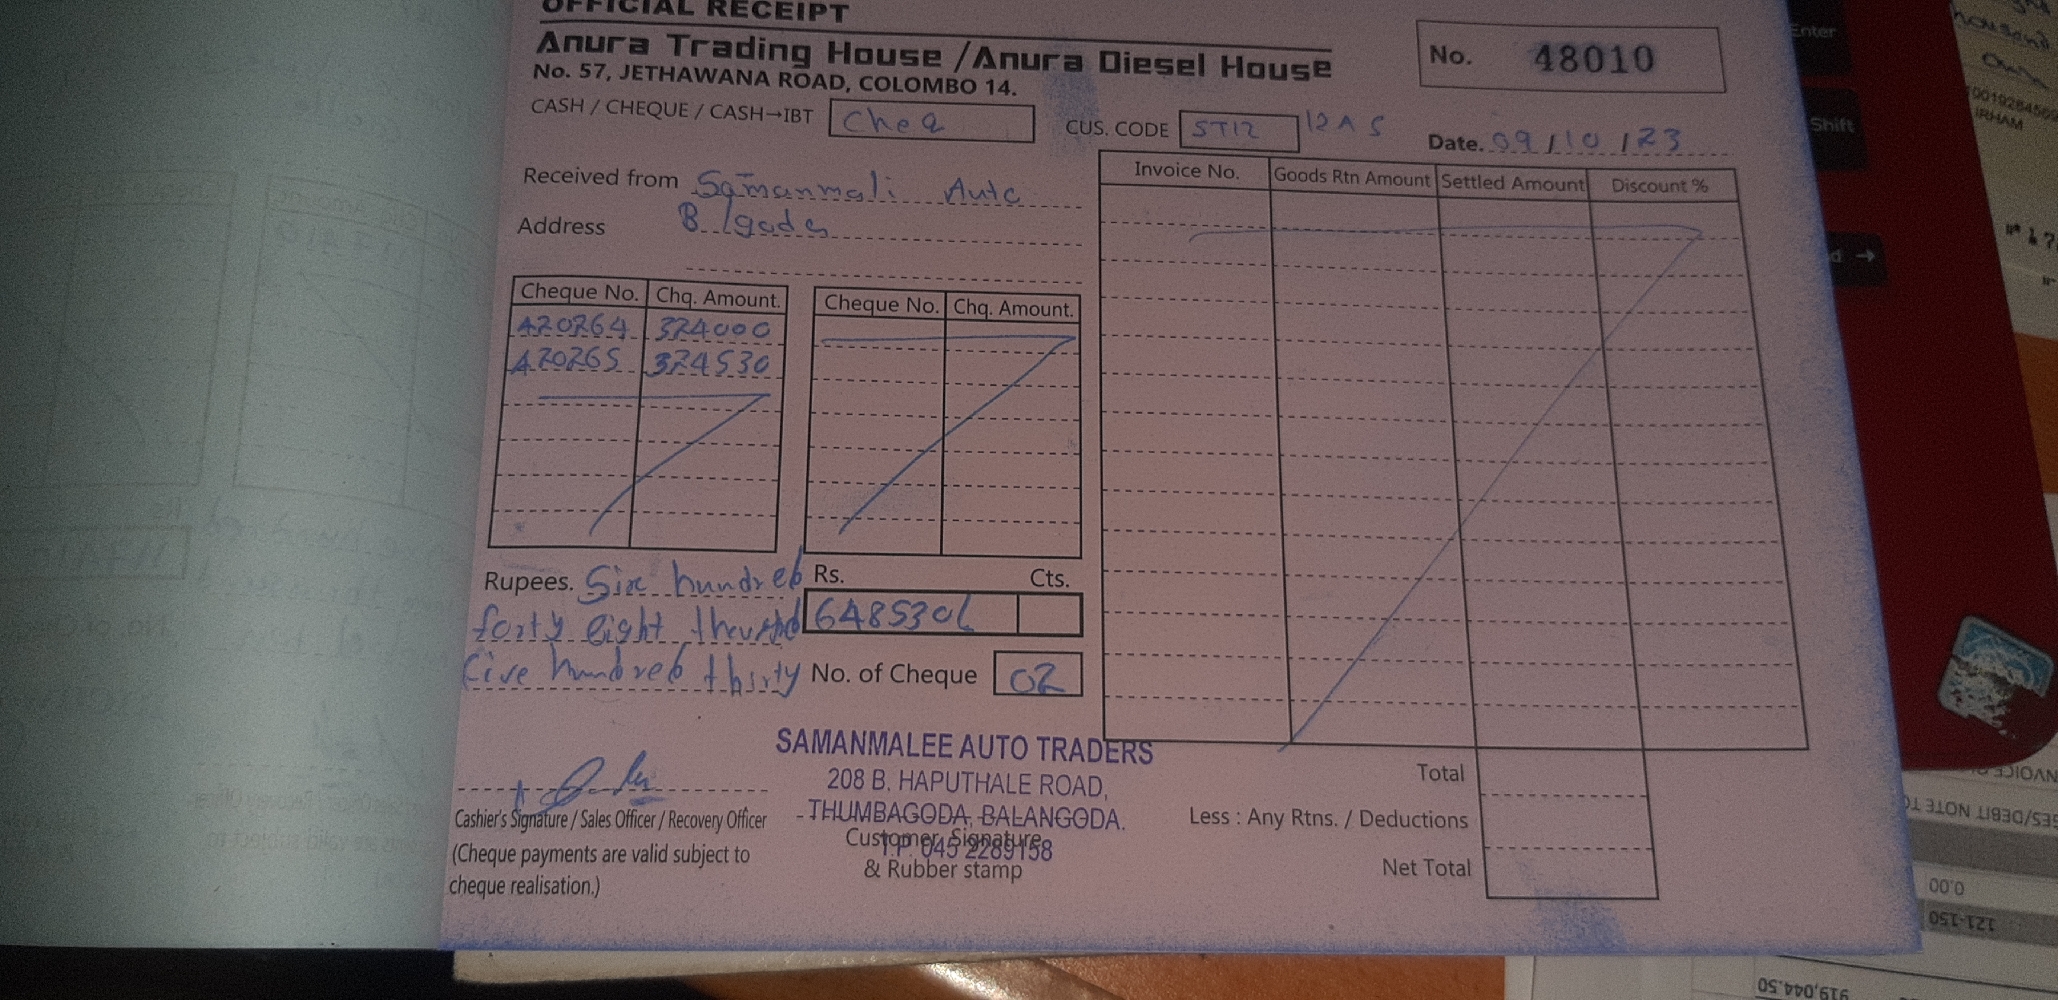 OFFICIAL RECEIPT
Anura Trading House / Anura Diesel House
No. 57, JETHAWANA ROAD, COLOMBO 14.
No. 48010
CASH / CHEQUE / CASH→IBT Cheq
CUS. CODE ST12 12AS
Date. 09/10/23
Received from Samanmali Auto
Address B/goda
Cheque No. Chq. Amount.
420264 324000
420265 324530
Cheque No. Chq. Amount.
Invoice No. Goods Rtn Amount Settled Amount Discount %
Rupees. Six hundred
forty eight thousand
five hundred thirty
Rs. Cts.
648530/
No. of Cheque 02
SAMANMALEE AUTO TRADERS
208 B. HAPUTHALE ROAD,
THUMBAGODA, BALANGODA.
T.P. 045 2289158
Customer Signature
& Rubber stamp
Cashier's Signature / Sales Officer / Recovery Officer
(Cheque payments are valid subject to
cheque realisation.)
Total
Less : Any Rtns. / Deductions
Net Total
Enter
Shift
IRHAM
0.00
121-150
919,044.50